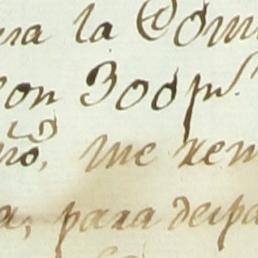 ra la Com
con 300 ps.
ño, me rem
a, para despa